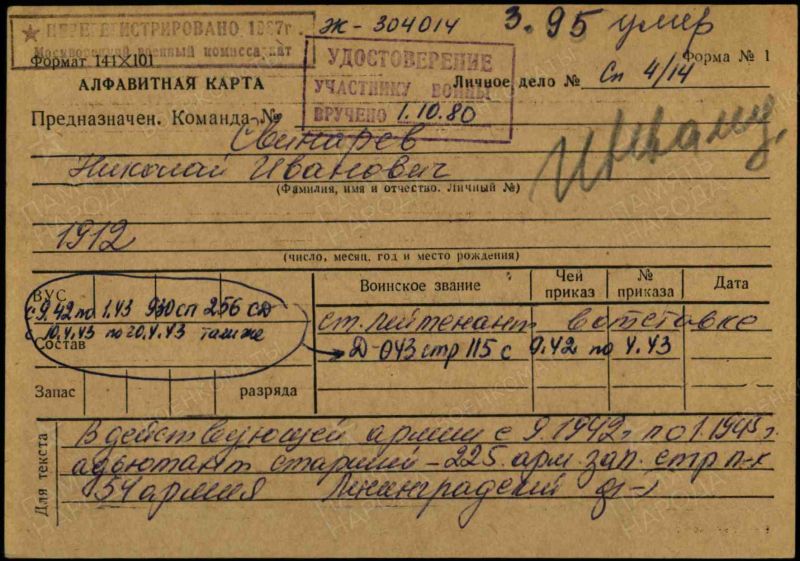 ПЕРЕРЕГИСТРИРОВАНО 1987г.
Ж - 304014
3.95 умер
Московский военный комиссариат
Формат 141Х101
УДОСТОВЕРЕНИЕ
УЧАСТНИКУ ВОЙНЫ
ВРУЧЕНО 1.10.80
Форма № 1
АЛФАВИТНАЯ КАРТА
Личное дело № Сп 4/14
Предназначен. Команда №
Свинарев
Николай Иванович
(Фамилия, имя и отчество. Личный №)
1912
(число, месяц, год и место рождения)
ВУС
Воинское звание
Чей приказ
№ приказа
Дата
с 9.42 по 1.43 930 сп 256 сд
с 10.4.43 по 20.4.43 там же
Состав
ст. лейтенант в отставке
Д-043 стр 115 с 9.42 по 4.43
Запас
разряда
Для текста
В действующей армии с 9.1942г по 1.1945г.
адьютант старший - 225 арм. зап. стр п-к
54 армия Ленинградский ф-т
ПАМЯТЬ НАРОДА